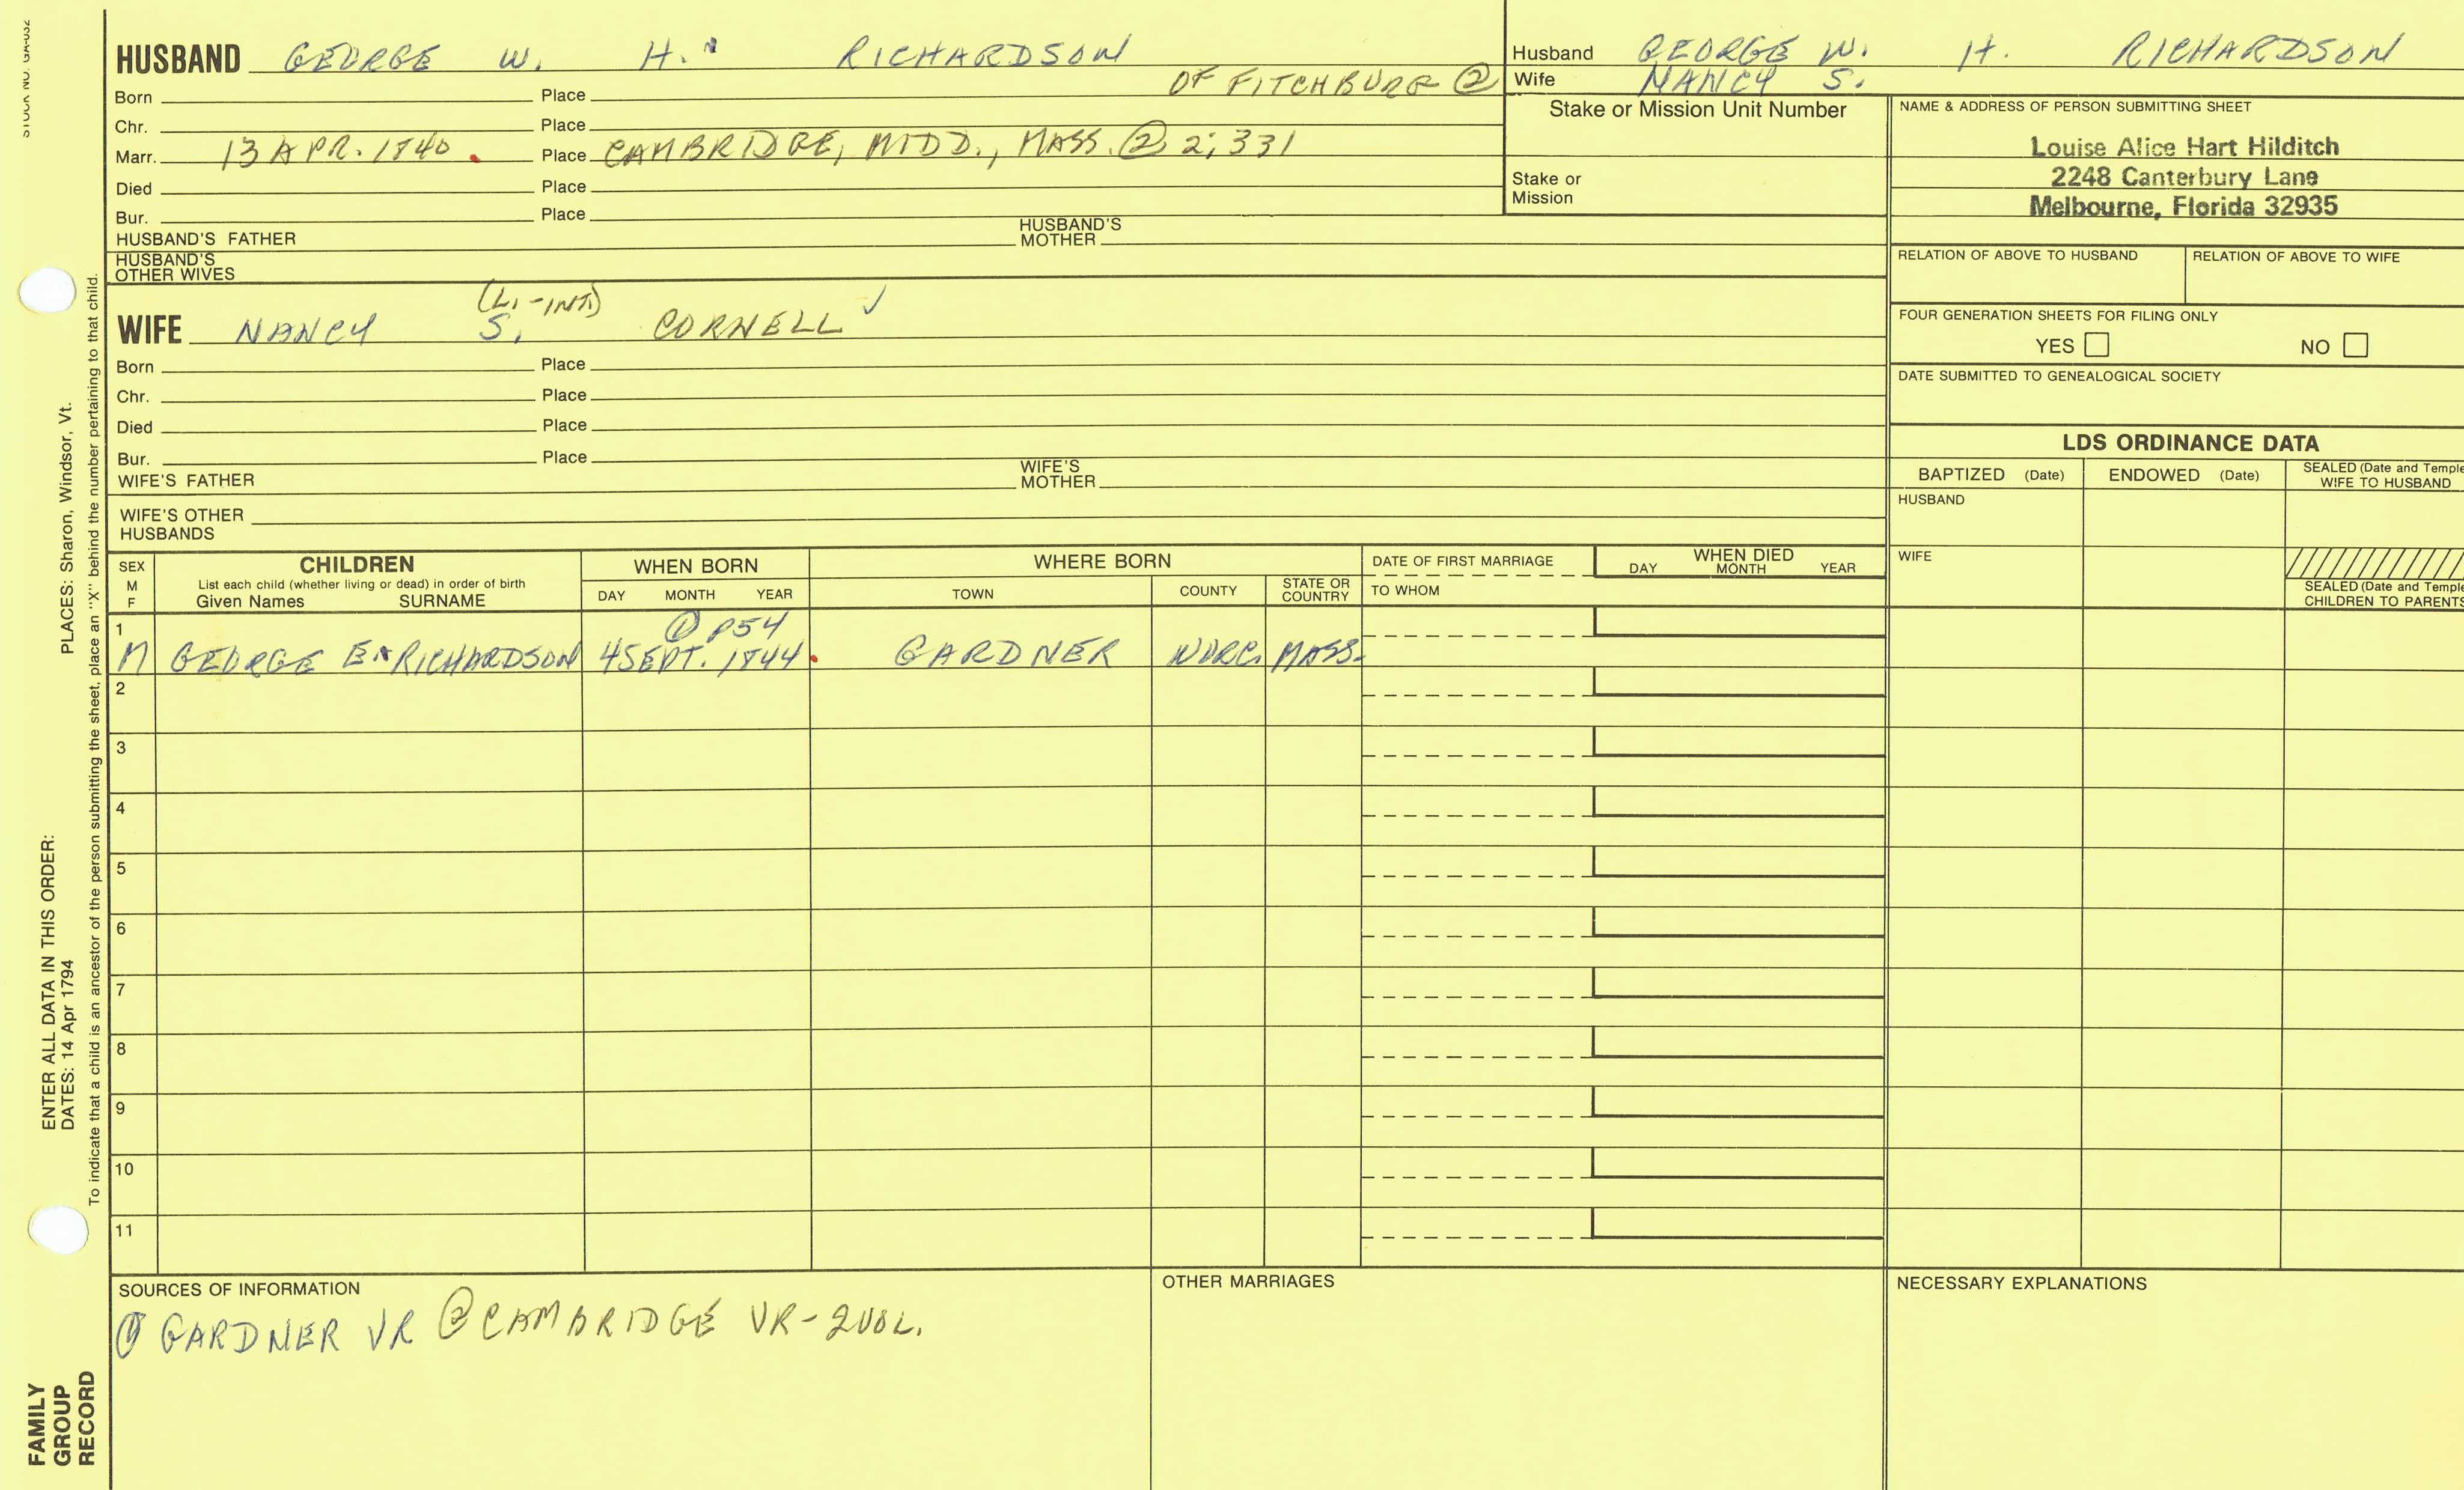 HUSBAND GEORGE W. H. RICHARDSON
OF FITCHBURG ②
Born Place
Chr. Place
Marr. 13 APR. 1840. Place CAMBRIDGE, MIDD., MASS. ② 2; 331
Died Place
Bur. Place
HUSBAND'S FATHER HUSBAND'S MOTHER
HUSBAND'S OTHER WIVES
(L.-INT.)
WIFE NANCY S. CORNELL ✓
Born Place
Chr. Place
Died Place
Bur. Place
WIFE'S FATHER WIFE'S MOTHER
WIFE'S OTHER HUSBANDS
Husband GEORGE W. H. RICHARDSON
Wife NANCY S.
Stake or Mission Unit Number
Stake or Mission
NAME & ADDRESS OF PERSON SUBMITTING SHEET
Louise Alice Hart Hilditch
2248 Canterbury Lane
Melbourne, Florida 32935
RELATION OF ABOVE TO HUSBAND RELATION OF ABOVE TO WIFE
FOUR GENERATION SHEETS FOR FILING ONLY
YES NO
DATE SUBMITTED TO GENEALOGICAL SOCIETY
LDS ORDINANCE DATA
BAPTIZED (Date) ENDOWED (Date) SEALED (Date and Temple
WIFE TO HUSBAND
HUSBAND
WIFE
SEALED (Date and Temple
CHILDREN TO PARENTS
SEX
M
F
CHILDREN
List each child (whether living or dead) in order of birth
Given Names SURNAME
WHEN BORN
DAY MONTH YEAR
WHERE BORN
TOWN COUNTY STATE OR COUNTRY
DATE OF FIRST MARRIAGE
TO WHOM
WHEN DIED
DAY MONTH YEAR
1
① P54
M GEORGE E. RICHARDSON 4 SEPT. 1844. GARDNER WORC. MASS.
2
3
4
5
6
7
8
9
10
11
SOURCES OF INFORMATION
① GARDNER VR ② CAMBRIDGE VR - 2 VOL.
OTHER MARRIAGES
NECESSARY EXPLANATIONS
STOCK NO.
PLACES: Sharon, Windsor, Vt.
ENTER ALL DATA IN THIS ORDER:
DATES: 14 Apr 1794
To indicate that a child is an ancestor of the person submitting the sheet, place an "X" behind the number pertaining to that child.
FAMILY
GROUP
RECORD